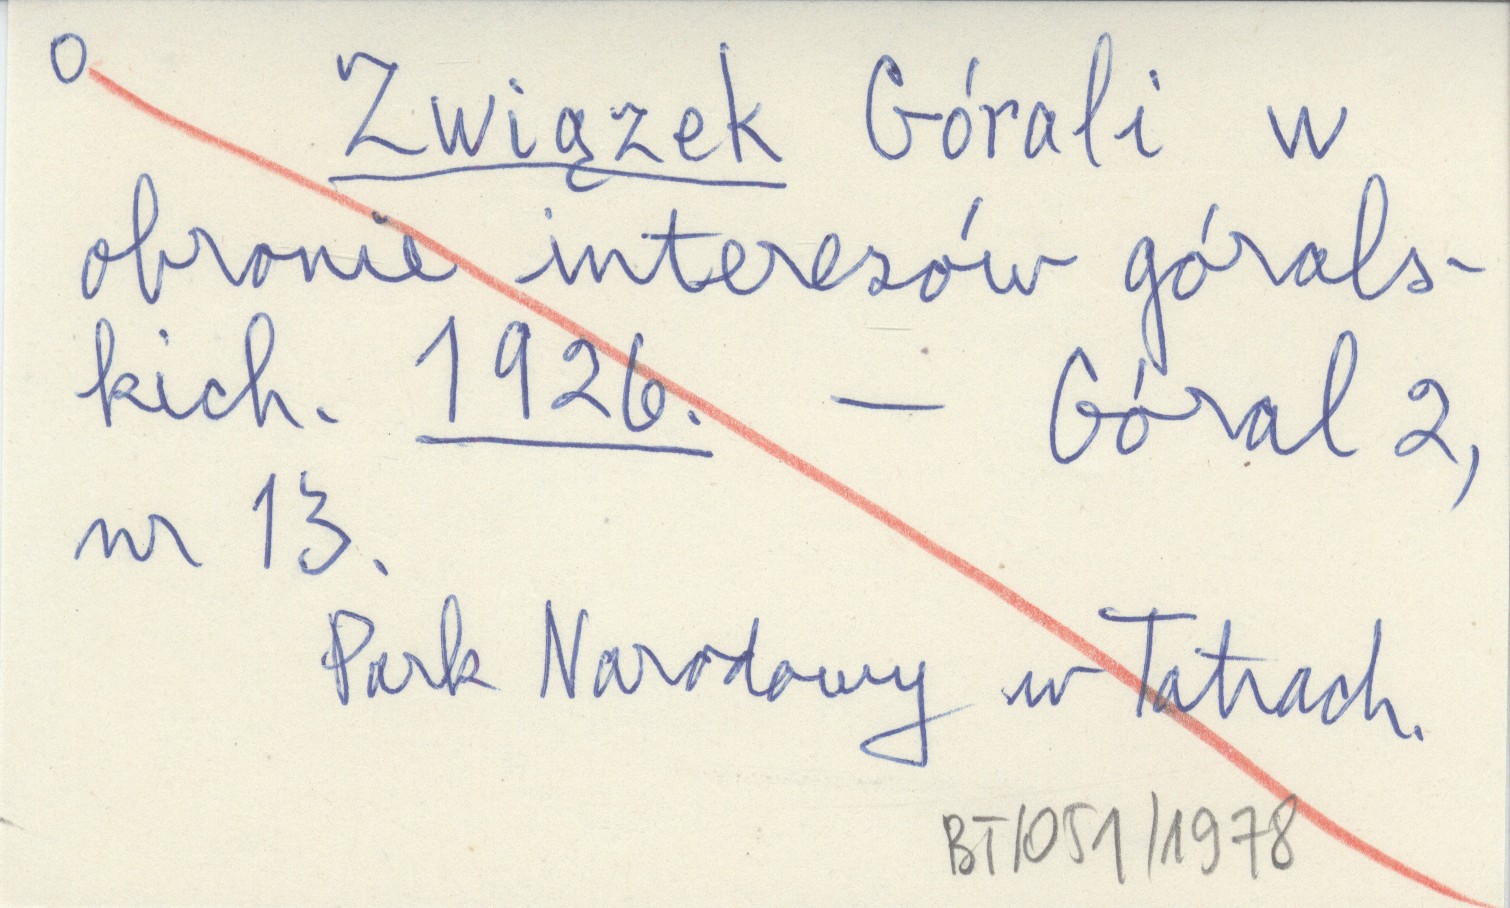 O
Związek Górali w
obronie interesów górals-
kich. 1926. — Góral 2,
nr 13.
Park Narodowy w Tatrach.
BT/051/1978